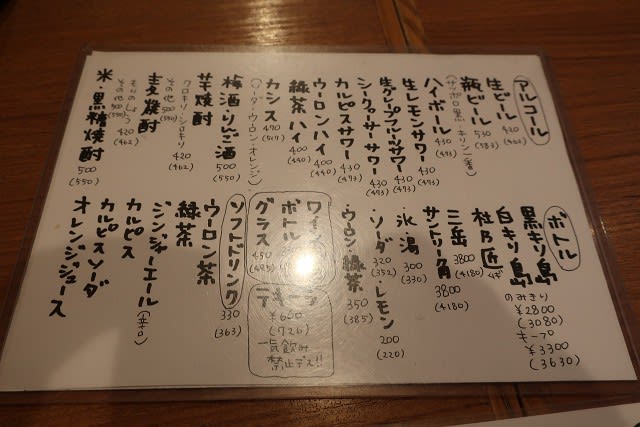 アルコール
生ビール 420 (462)
瓶ビール 530 (583)
(サッポロ黒・キリン一番)
ハイボール 430 (473)
生レモンサワー 430 (473)
生グレープフルーツサワー 430 (473)
シークヮーサーサワー 430 (473)
カルピスサワー 430 (473)
ウーロンハイ 400 (440)
緑茶ハイ 400 (440)
カシス 470 (517)
(ソーダ・ウーロン・オレンジ)
梅酒・りんご酒 500 (550)
芋焼酎
クロキリ・シロキリ 420 (462)
その他 500 (550)
麦焼酎
420 (462)
その他 500 (550)
米・黒糖焼酎 500 (550)
ボトル
黒キリ島
白キリ島
のみきり ¥2800 (3080)
キープ ¥3300 (3630)
杜乃匠
三岳 3800 (4180)
サントリー角 3800 (4180)
氷・湯 300 (330)
・ソーダ 320 (352) ・レモン 200 (220)
・ウーロン・緑茶 350 (385)
ワイン
ボトル
グラス 450 (495)
テキーラ
¥660 (726)
一気飲み
禁止デス!!
ソフトドリンク 330 (363)
ウーロン茶
緑茶
ジンジャーエール(辛口)
カルピス
カルピスソーダ
オレンジジュース